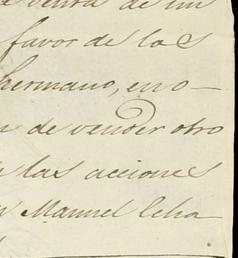 venta de un
favor de las
hermano, en o-
de vender otro
las acciones
Manuel Cha